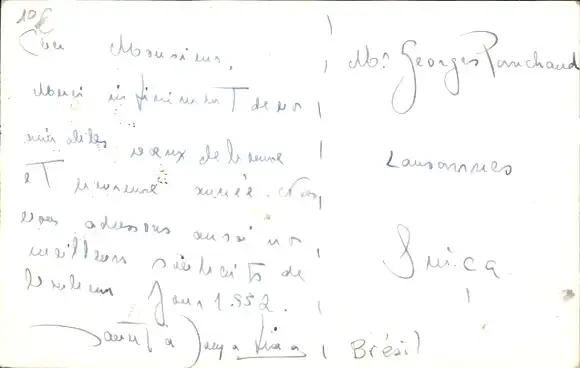 10
Cher Monsieur,
Merci infiniment de vos
aimables vœux de bonne
et heureuse année. Nous
vous adressons aussi nos
meilleurs souhaits de
bonheur pour 1.952.
Mr. Georges Panchaud
Lausannes
Suiça
Brésil